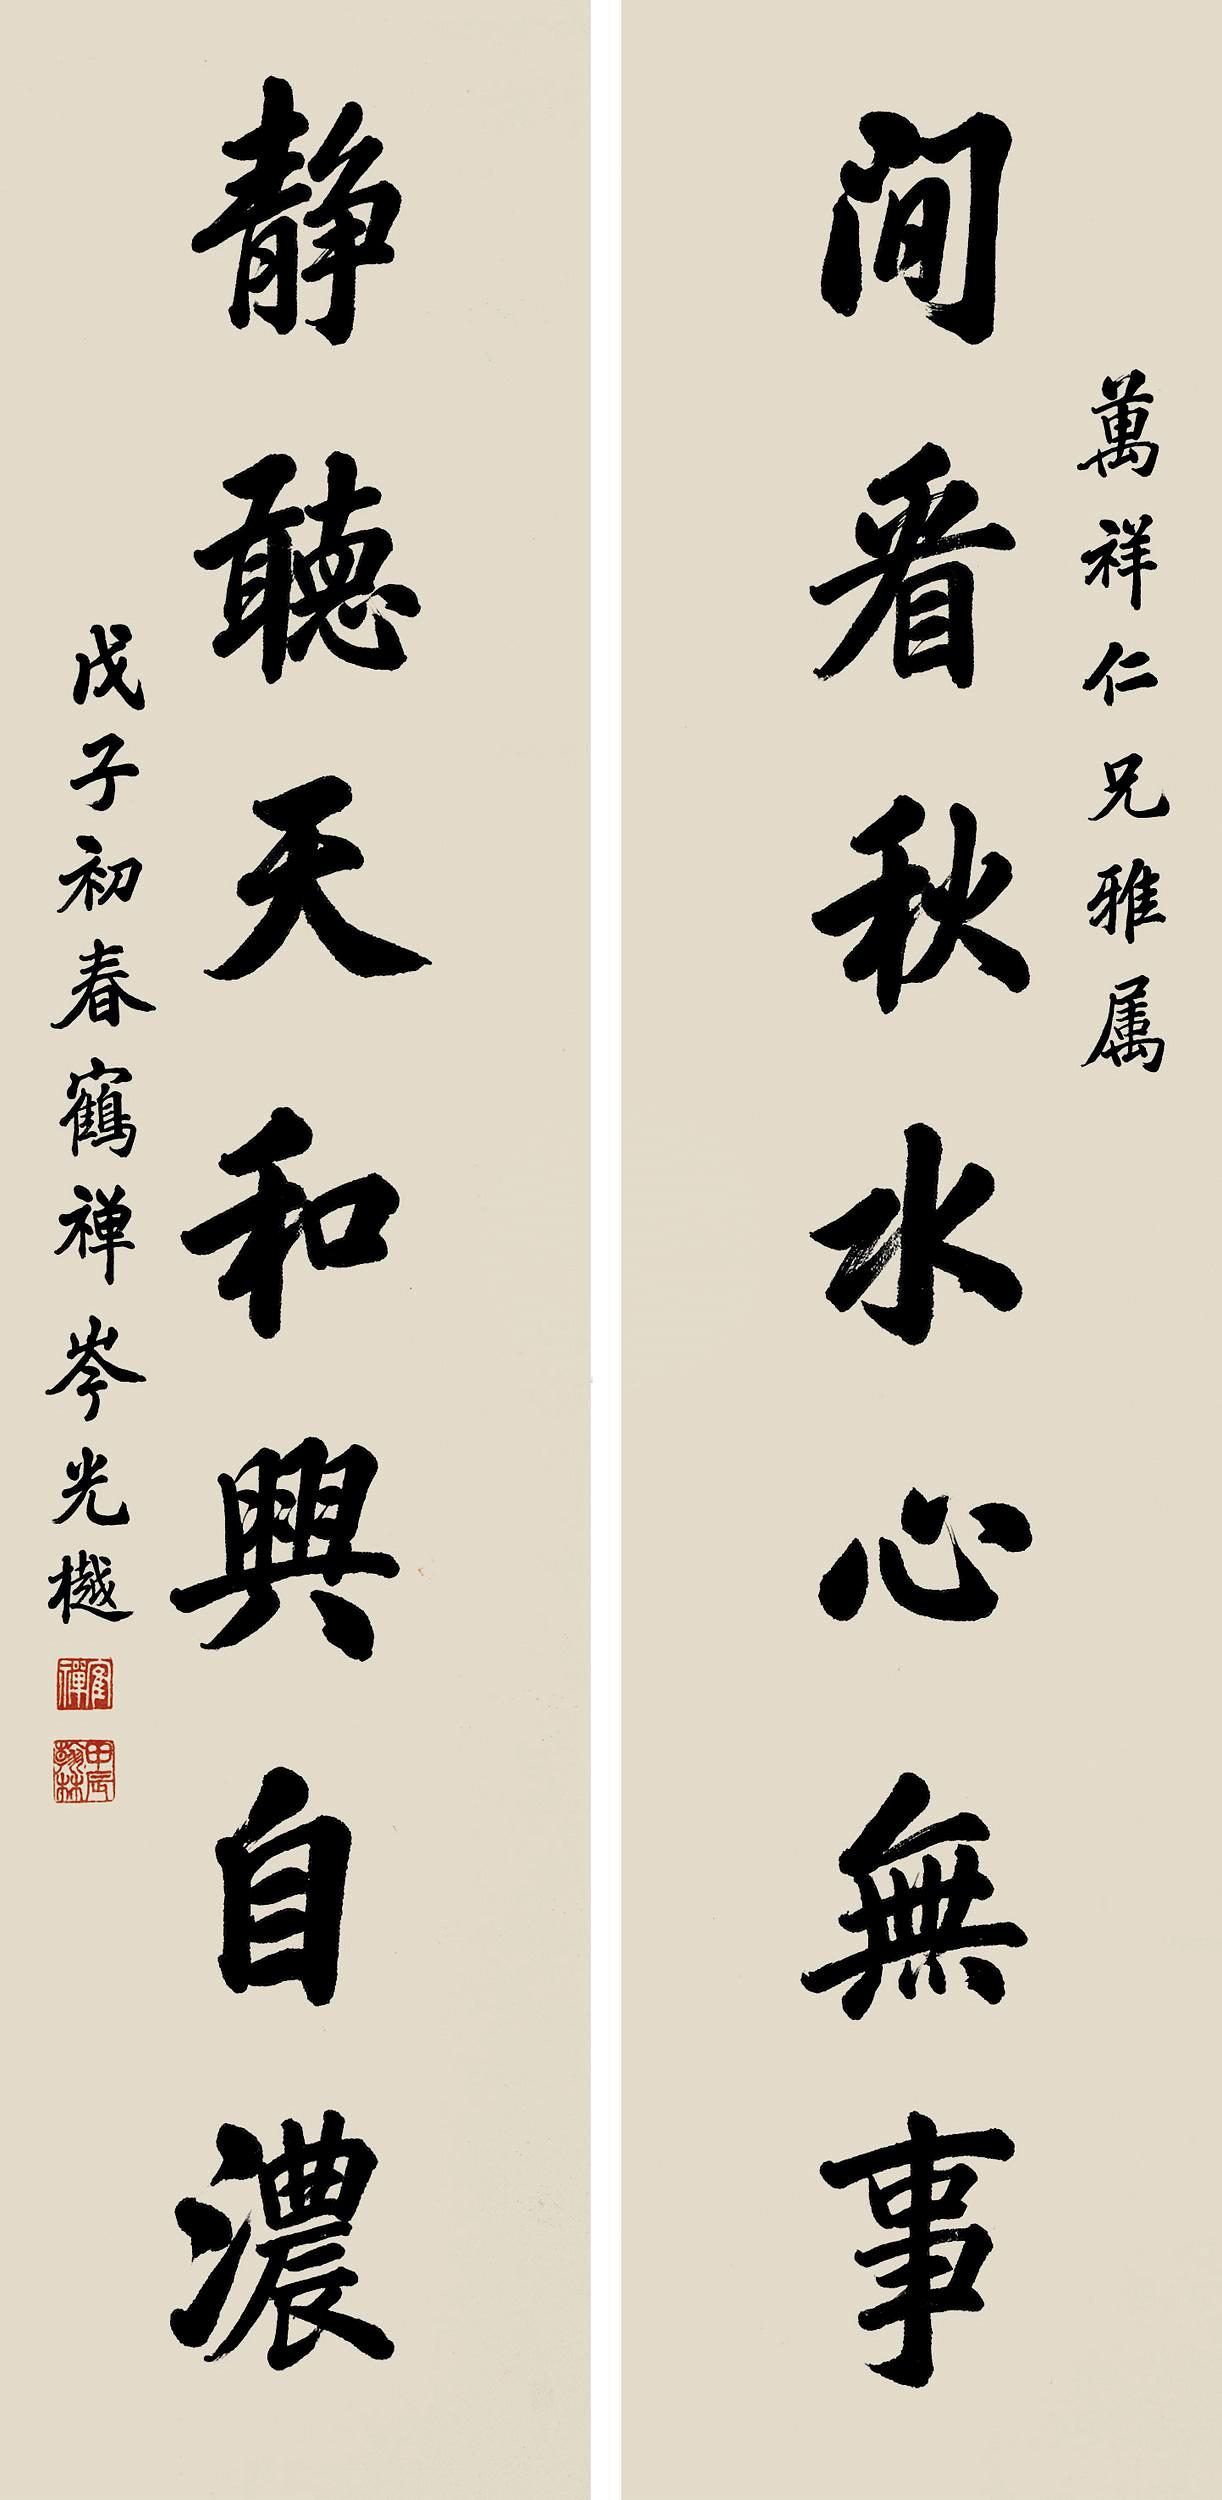 萬祥仁兄雅属
间看秋水心無事
静聽天和興自濃
戊子初春鶴禅岑光樾
鶴禪
甲辰翰林